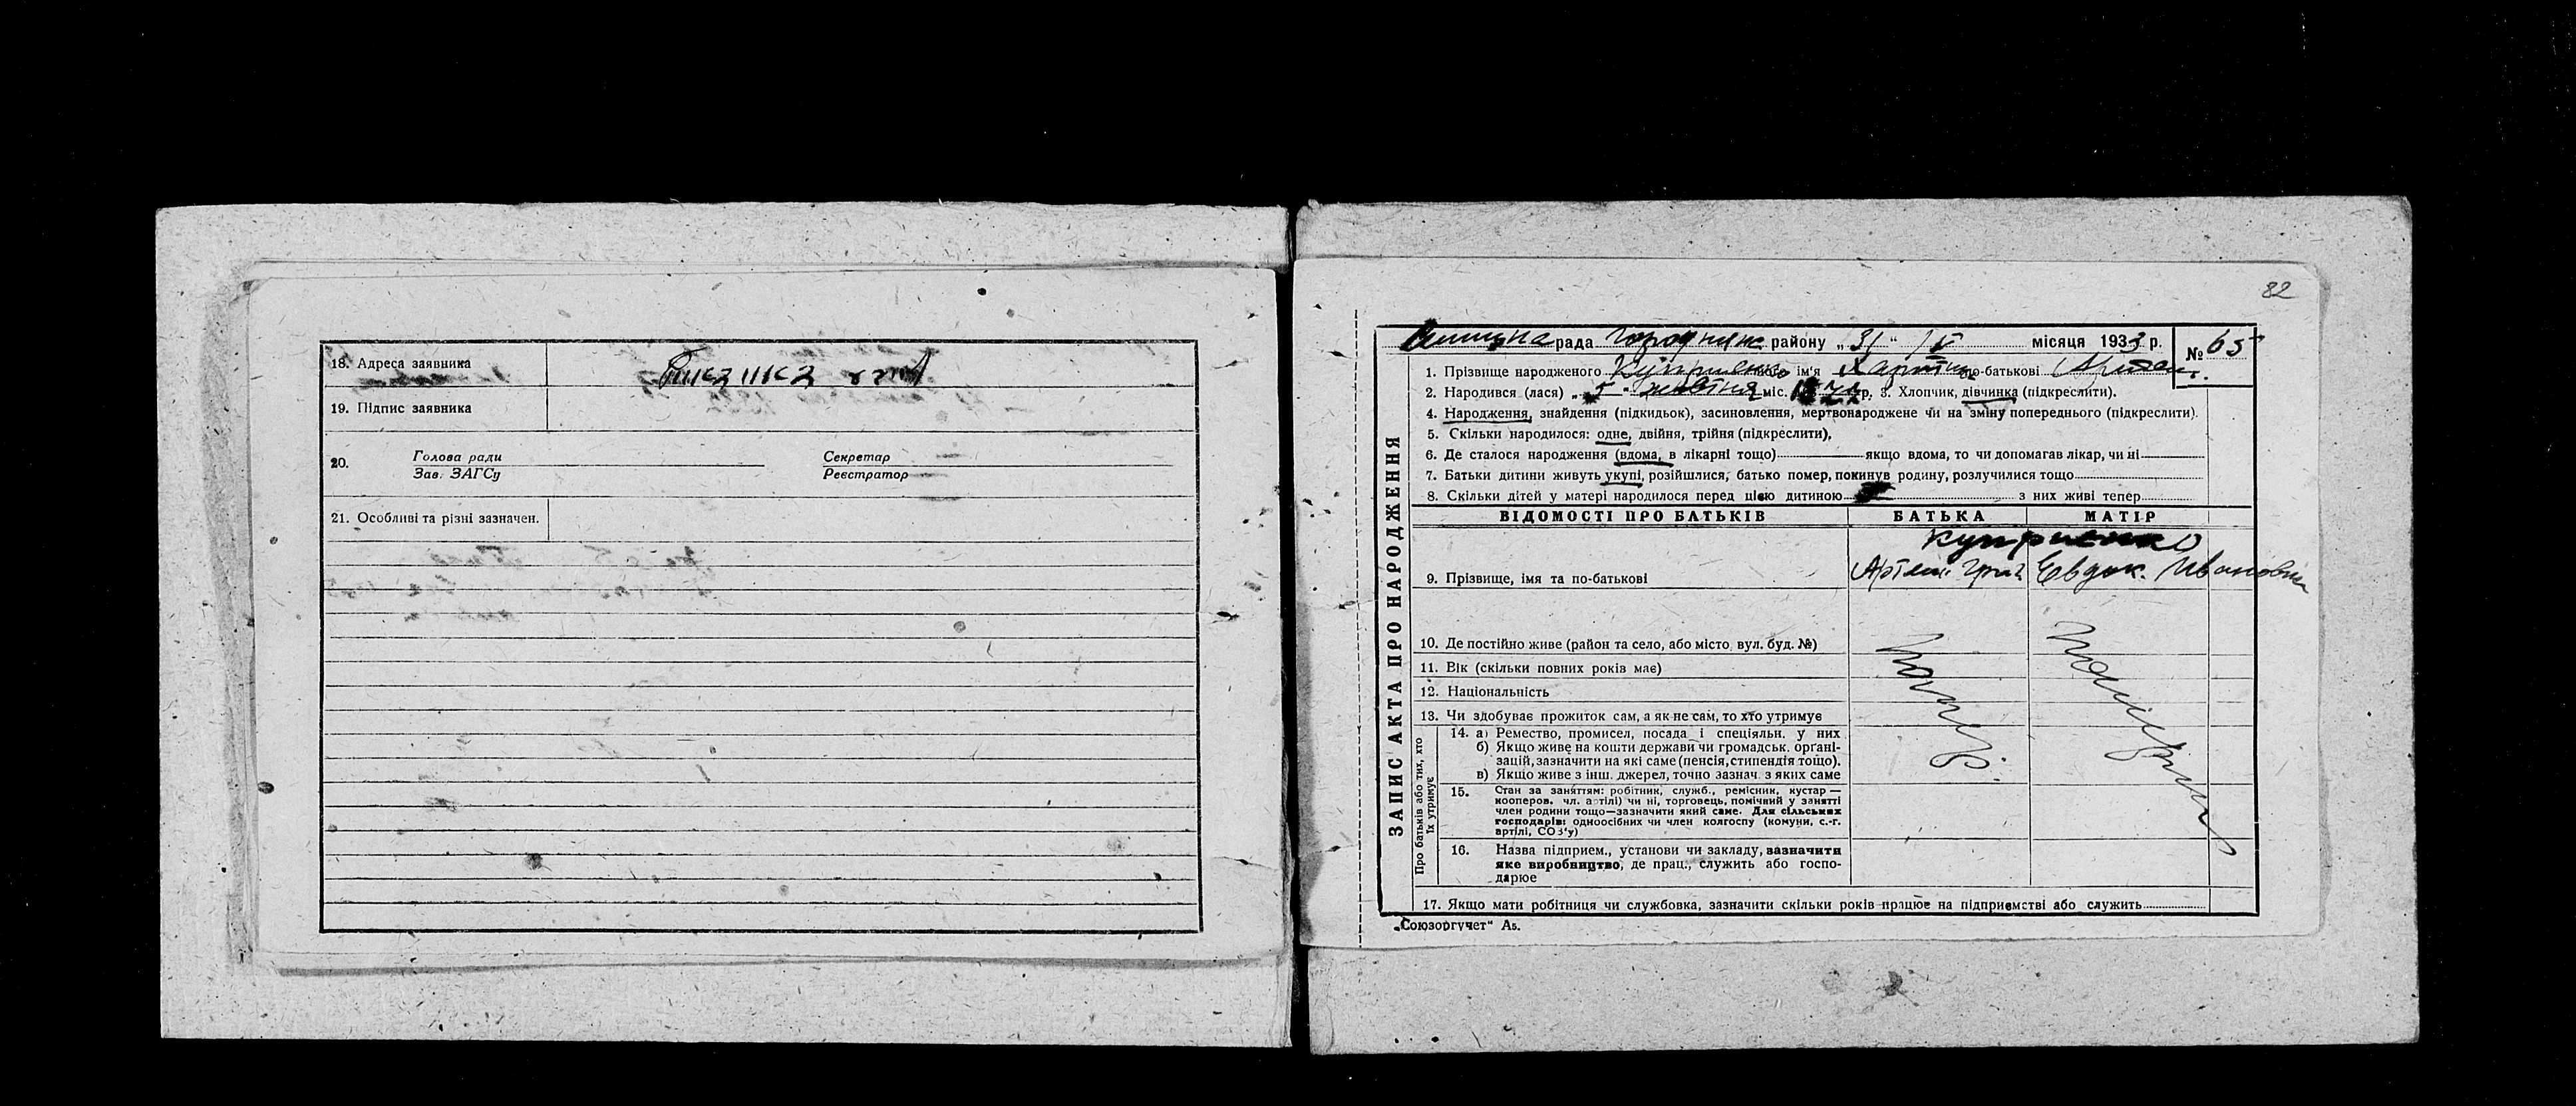 18. Адреса заявника
19. Підпис заявника
20. Голова ради Секретар
Зав. ЗАГСу Реєстратор
21. Особливі та різні зазначен.
82
рада Городняк району „ 31 “ IV місяця 1933 р.
№ 65
1. Прізвище народженого Куприенко ім'я по-батькові
2. Народився (лася) „ 5 “ жовтня міс. р. 3. Хлопчик, дівчинка (підкреслити).
4. Народження, знайдення (підкидьок), засиновлення, мертвонароджене чи на зміну попереднього (підкреслити).
5. Скільки народилося: одне, двійня, трійня (підкреслити),
6. Де сталося народження (вдома, в лікарні тощо) якщо вдома, то чи допомагав лікар, чи ні
7. Батьки дитини живуть укупі, розійшлися, батько помер, покинув родину, розлучилися тощо
8. Скільки дітей у матері народилося перед цією дитиною з них живі тепер
ВІДОМОСТІ ПРО БАТЬКІВ БАТЬКА МАТІР
Куприенко
9. Прізвище, імя та по-батькові Артем Евдок. Ивановна
10. Де постійно живе (район та село, або місто, вул. буд. №)
11. Вік (скільки повних років має)
12. Національність
13. Чи здобуває прожиток сам, а як не сам, то хто утримує
14. а) Ремество, промисел, посада і спеціяльн. у них
б) Якщо живе на кошти держави чи громадськ. органі-
зацій, зазначити на які саме (пенсія, стипендія тощо).
в) Якщо живе з інш. джерел, точно зазнач. з яких саме
15. Стан за заняттям: робітник, служб., ремісник, кустар —
кооперов. чл. артілі) чи ні, торговець, помічний у занятті
член родини тощо—зазначити який саме. Для сільських
господарів: одноосібних чи член колгоспу (комуни, с.-г.
артілі, СОЗ'у)
16. Назва підприєм., установи чи закладу, зазначити
яке виробництво, де прац., служить або госпо-
дарює
17. Якщо мати робітниця чи службовка, зазначити скільки років працює на підприємстві або служить
ЗАПИС АКТА ПРО НАРОДЖЕННЯ
Про батьків або тих, хто
їх утримує
„Союзоргучет“ А5.